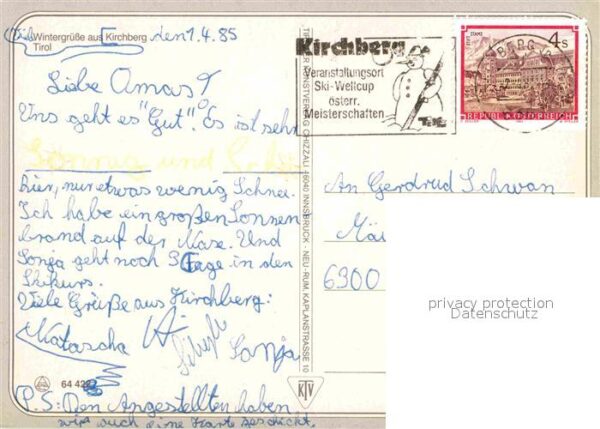 Wintergrüße aus Kirchberg
Tirol
den 1.4.85
Liebe Omas!
Uns geht es "Gut". Es ist sehr
Sonnig und
hier, nur etwas wenig Schnee.
Ich habe ein großen Sonnen
brand auf der Nase. Und
Sonja geht noch 3 Tage in den
Skikurs.
Viele Grüße aus Kirchberg:
Natascha
Sibylle Sonja
64 422
P.S: Den Angestellten haben
wir auch eine Karte geschickt.
KUNSTVERLAG CHIZZALI · 6040 INNSBRUCK - NEU-RUM, KAPLANSTRASSE 10
KTV
Kirchberg
Veranstaltungsort
Ski-Weltcup
österr.
Meisterschaften
STIFT STAMS
4 S
REPUBLIK ÖSTERREICH
An Gerdrud Schwan
Mai
6300
privacy protection
Datenschutz